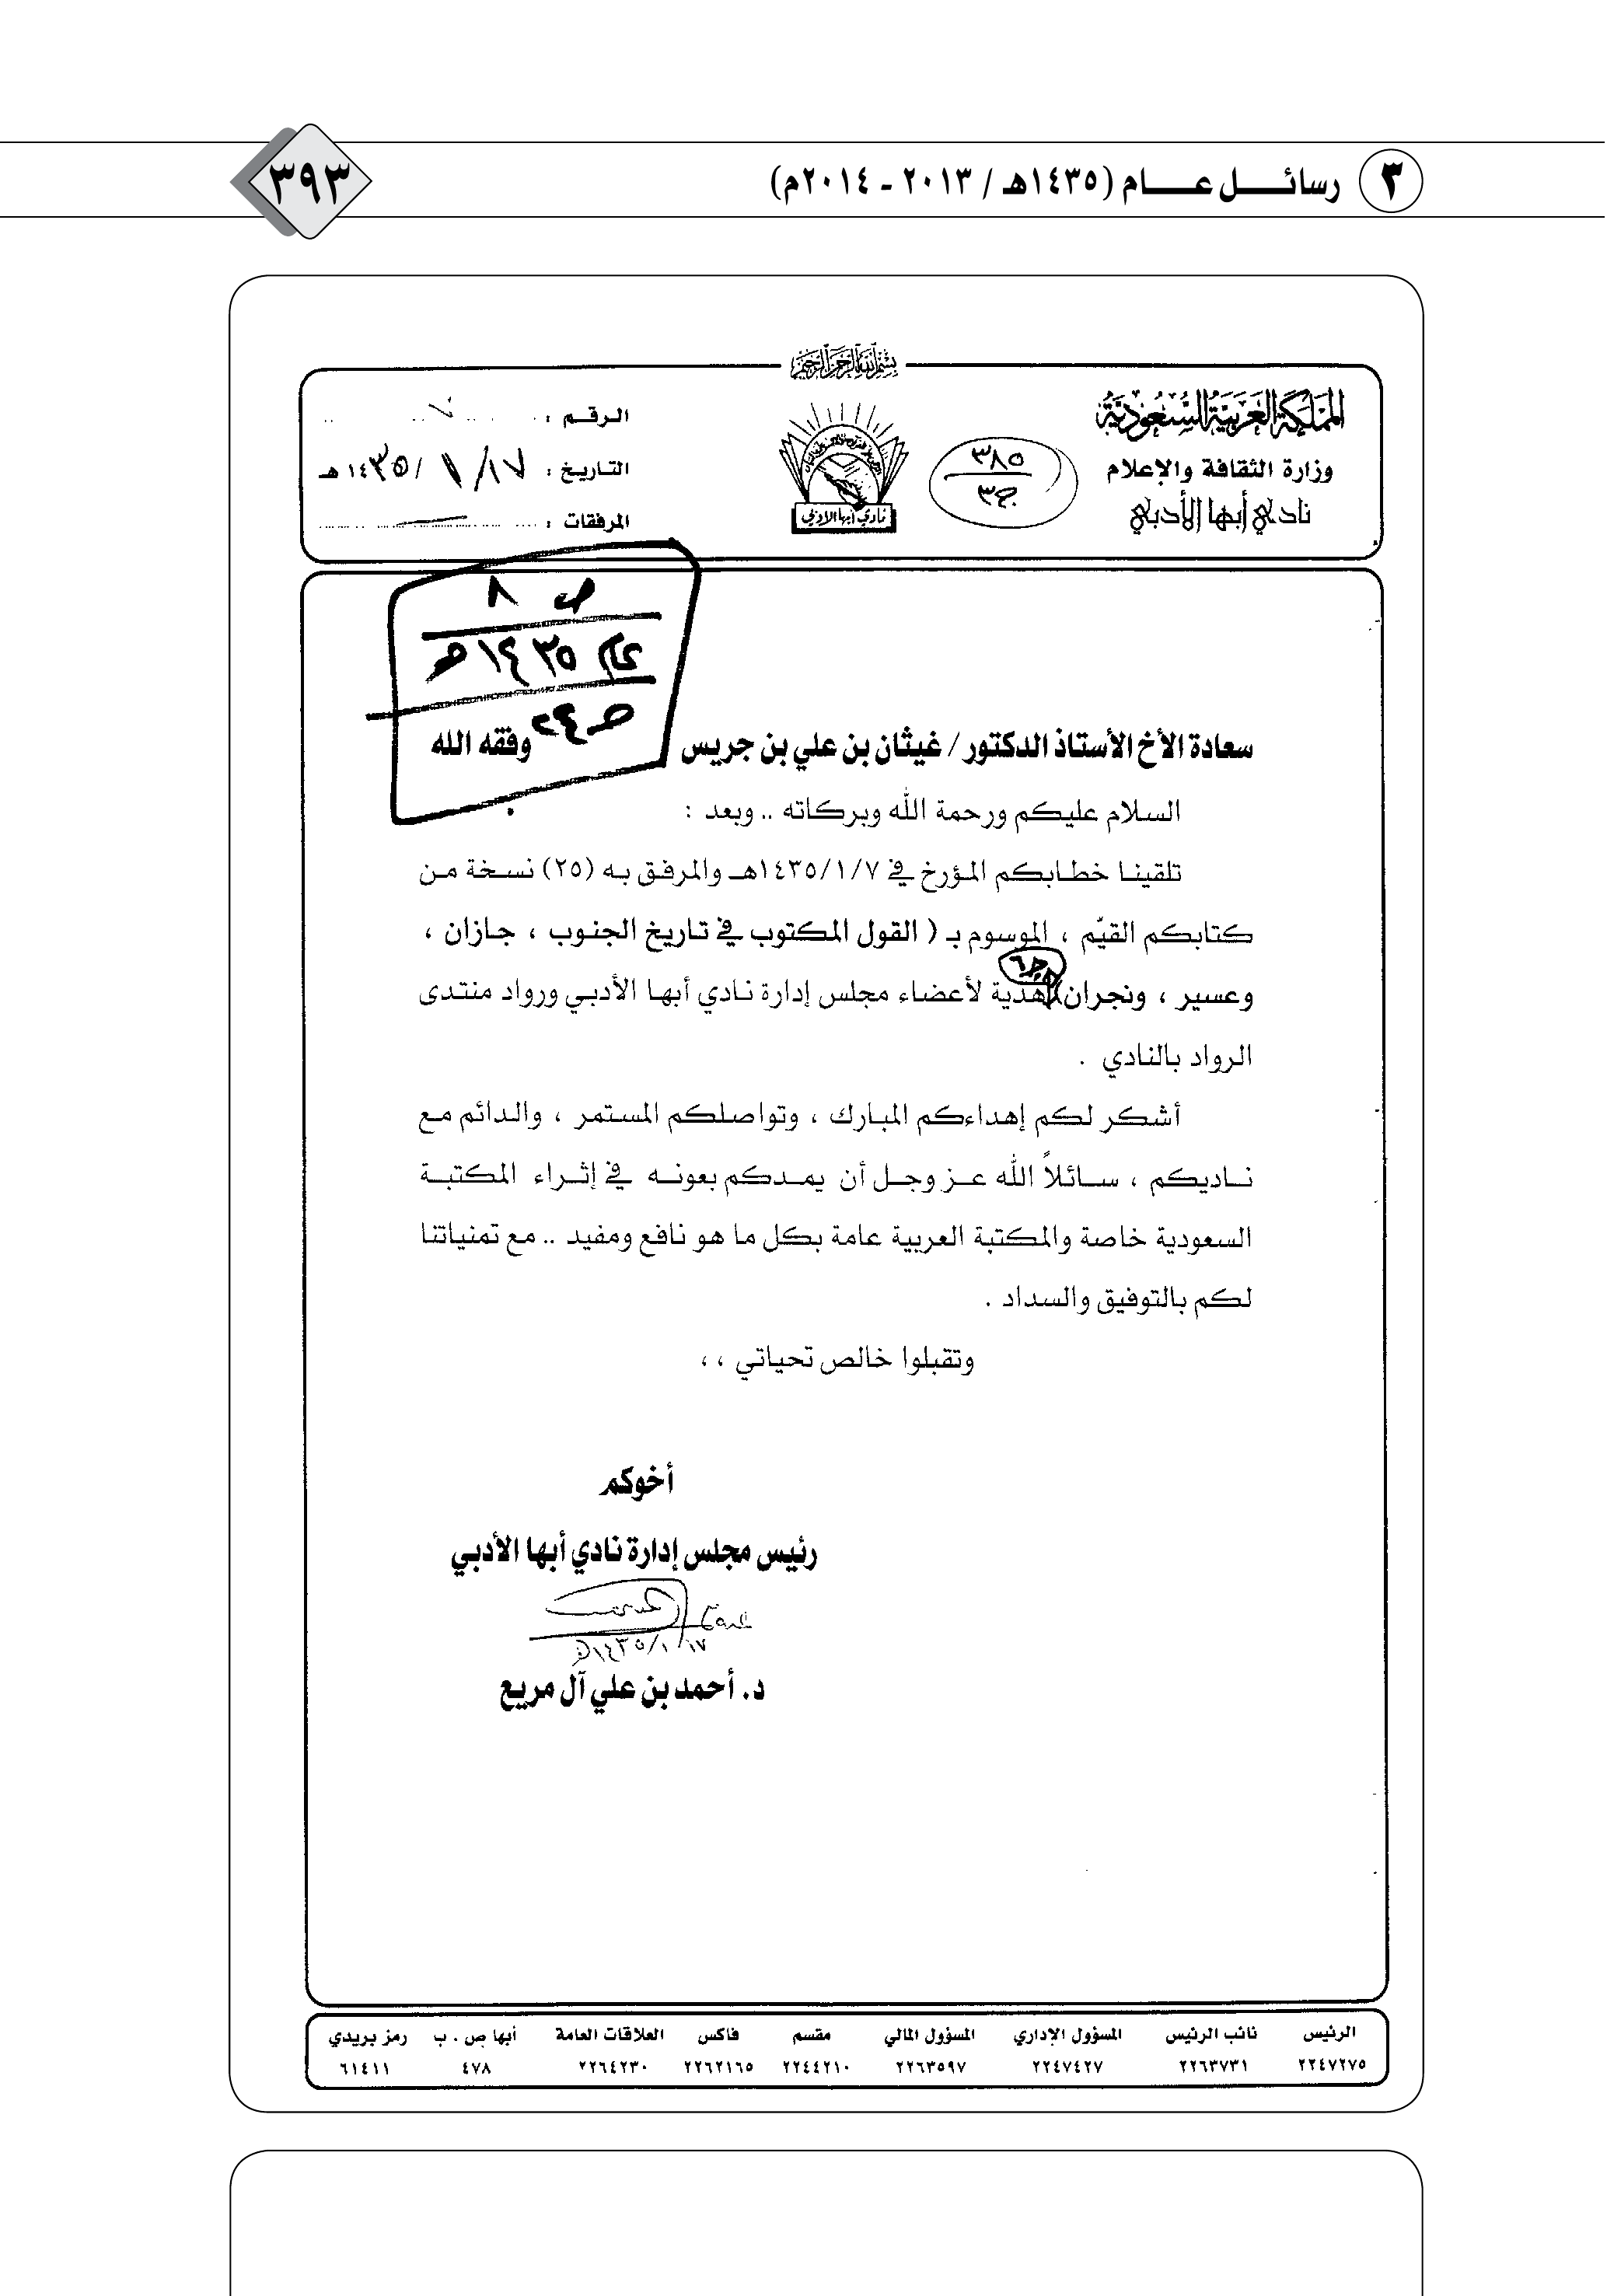 ٣ رسائل عام (١٤٣٥هـ / ٢٠١٣ - ٢٠١٤م)
٣٩٣
بسم الله الرحمن الرحيم
المملكة العربية السعودية
وزارة الثقافة والإعلام
نادي أبها الأدبي
٣٨٥
ج٣
نادي أبها الأدبي
الرقم :
التاريخ : ١٧ / ١ / ١٤٣٥ هـ
المرفقات :
ص ٨
عام ١٤٣٥هـ
سعادة الأخ الأستاذ الدكتور / غيثان بن علي بن جريس وفقه الله
السلام عليكم ورحمة الله وبركاته .. وبعد :
تلقينا خطابكم المؤرخ في ١٤٣٥/١/٧هـ والمرفق به (٢٥) نسخة من
كتابكم القيّم ، الموسوم بـ ( القول المكتوب في تاريخ الجنوب ، جازان ،
ج٦
وعسير ، ونجران) هدية لأعضاء مجلس إدارة نادي أبها الأدبي ورواد منتدى
الرواد بالنادي .
أشكر لكم إهداءكم المبارك ، وتواصلكم المستمر ، والدائم مع
ناديكم ، سائلاً الله عز وجل أن يمدكم بعونه في إثراء المكتبة
السعودية خاصة والمكتبة العربية عامة بكل ما هو نافع ومفيد .. مع تمنياتنا
لكم بالتوفيق والسداد .
وتقبلوا خالص تحياتي ، ،
أخوكم
رئيس مجلس إدارة نادي أبها الأدبي
١٤٣٥/١/١٧هـ
د. أحمد بن علي آل مريع
الرئيس نائب الرئيس المسؤول الإداري المسؤول المالي مقسم فاكس العلاقات العامة أبها ص . ب رمز بريدي
٢٢٤٧٢٧٥ ٢٢٦٣٧٣١ ٢٢٤٧٤٢٧ ٢٢٦٣٥٩٧ ٢٢٤٤٢١٠ ٢٢٦٢١٦٥ ٢٢٦٤٢٣٠ ٤٧٨ ٦١٤١١